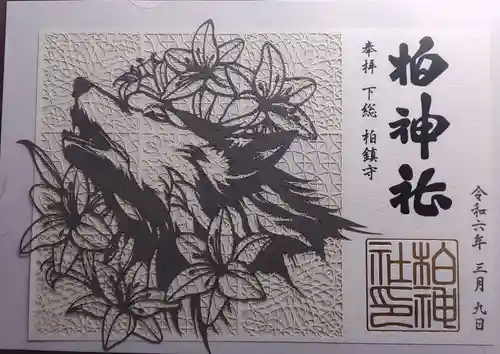 柏神社
奉拝 下総 柏鎮守
令和六年 三月 九日
柏神
社印